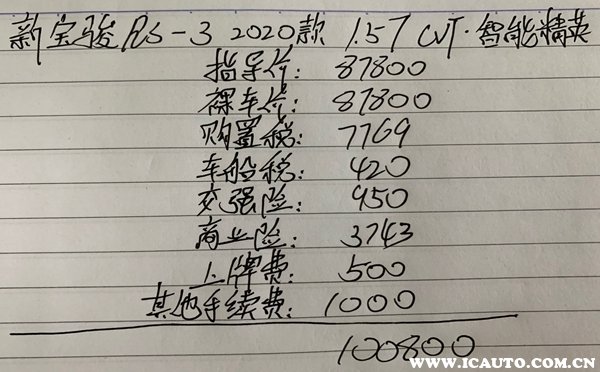 新宝骏RS-3 2020款 1.5T CVT·智能精英
指导价: 87800
裸车价: 87800
购置税: 7769
车船税: 420
交强险: 950
商业险: 3743
上牌费: 500
其他手续费: 1000
100800
WWW.ICAUTO.COM.CN